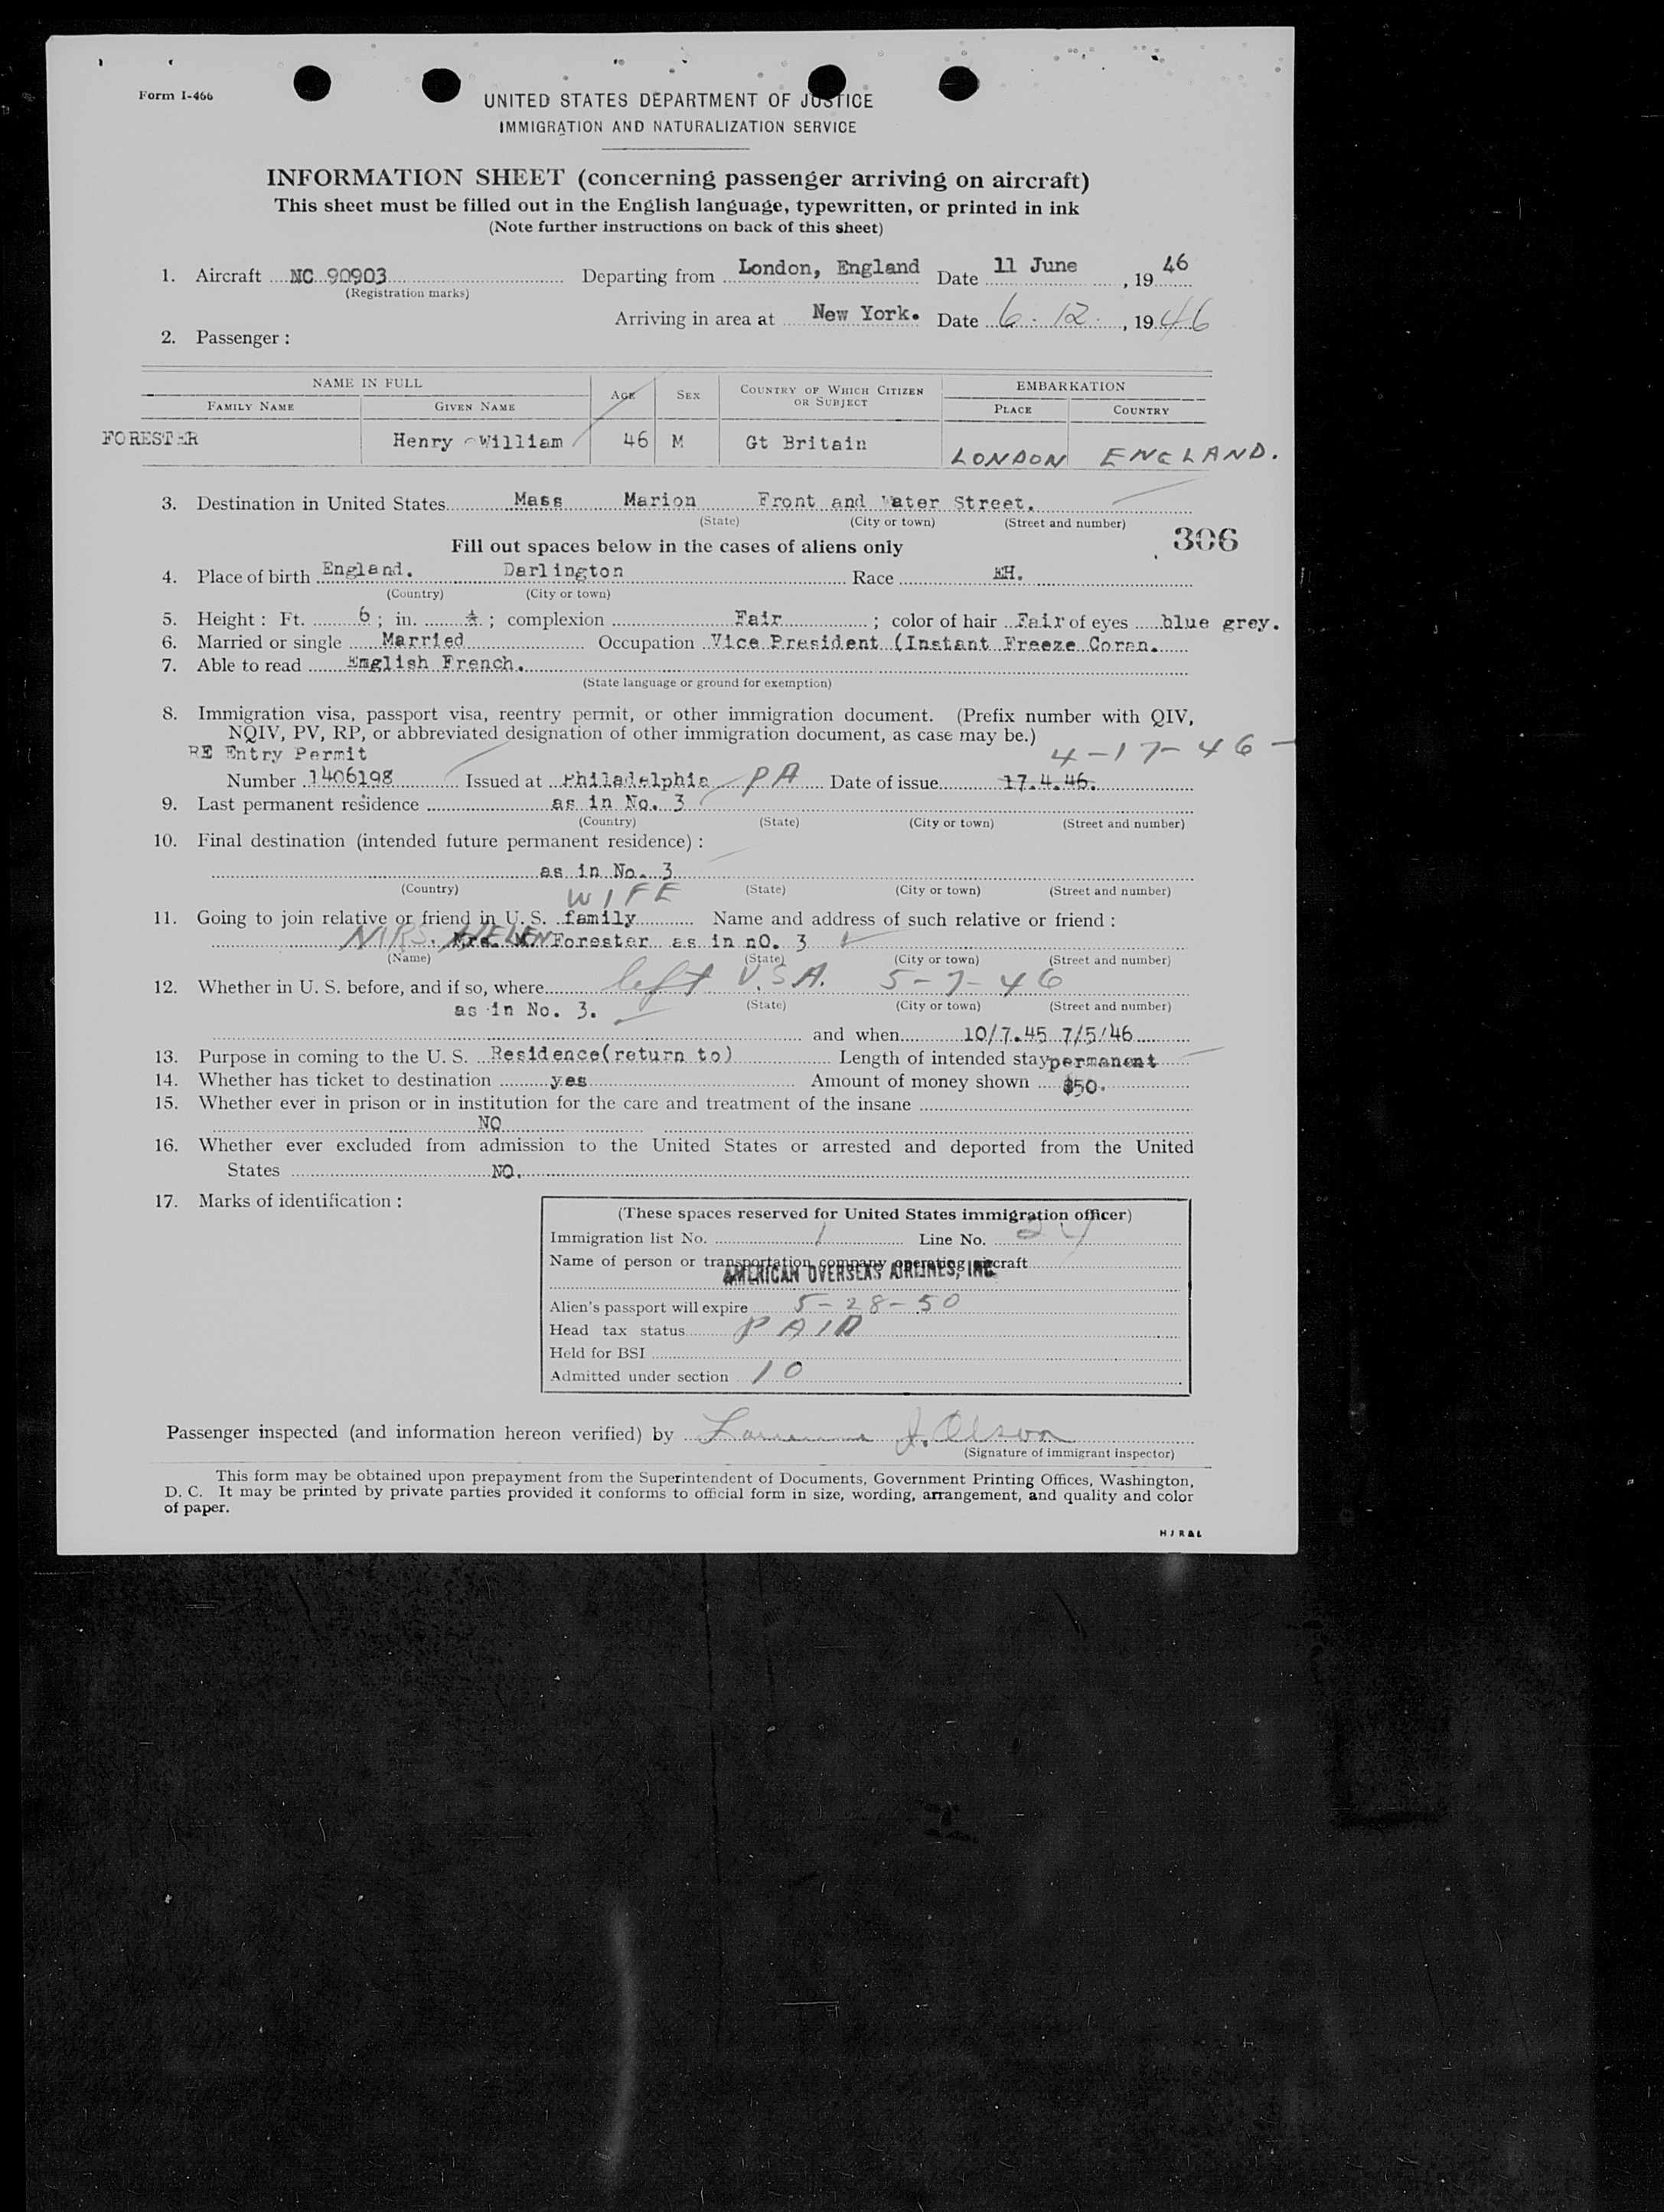 Form I-466
UNITED STATES DEPARTMENT OF JUSTICE
IMMIGRATION AND NATURALIZATION SERVICE
INFORMATION SHEET (concerning passenger arriving on aircraft)
This sheet must be filled out in the English language, typewritten, or printed in ink
(Note further instructions on back of this sheet)
1. Aircraft NC 90903 Departing from London, England Date 11 June, 1946
(Registration marks)
Arriving in area at New York. Date 6. 12., 1946
2. Passenger:
NAME IN FULL AGE SEX COUNTRY OF WHICH CITIZEN OR SUBJECT EMBARKATION
FAMILY NAME GIVEN NAME PLACE COUNTRY
FORESTER Henry William 46 M Gt Britain LONDON ENGLAND.
3. Destination in United States Mass Marion Front and Water Street.
(State) (City or town) (Street and number)
306
Fill out spaces below in the cases of aliens only
4. Place of birth England. Darlington Race EH.
(Country) (City or town)
5. Height: Ft. 6; in. ; complexion Fair; color of hair Fair of eyes blue grey.
6. Married or single Married Occupation Vice President (Instant Freeze Coren.
7. Able to read English French.
(State language or ground for exemption)
8. Immigration visa, passport visa, reentry permit, or other immigration document. (Prefix number with QIV,
NQIV, PV, RP, or abbreviated designation of other immigration document, as case may be.)
RE Entry Permit 4-17-46-
Number 1406198 Issued at Philadelphia PA Date of issue 17.4.46.
9. Last permanent residence as in No. 3
(Country) (State) (City or town) (Street and number)
10. Final destination (intended future permanent residence):
as in No. 3
(Country) (State) (City or town) (Street and number)
WIFE
11. Going to join relative or friend in U. S. family Name and address of such relative or friend:
MRS. HELEN Forester as in nO. 3
(Name) (State) (City or town) (Street and number)
12. Whether in U. S. before, and if so, where left U.S.A. 5-7-46
as in No. 3. (State) (City or town) (Street and number)
and when 10/7.45 7/5/46
13. Purpose in coming to the U. S. Residence(return to) Length of intended stay permanent
14. Whether has ticket to destination yes Amount of money shown $50.
15. Whether ever in prison or in institution for the care and treatment of the insane
NO
16. Whether ever excluded from admission to the United States or arrested and deported from the United
States NO.
17. Marks of identification:
(These spaces reserved for United States immigration officer)
Immigration list No. 1 Line No. 24
Name of person or transportation company operating aircraft
AMERICAN OVERSEAS AIRLINES, INC.
Alien's passport will expire 5-28-50
Head tax status PAID
Held for BSI
Admitted under section 10
Passenger inspected (and information hereon verified) by J. Olson
(Signature of immigrant inspector)
This form may be obtained upon prepayment from the Superintendent of Documents, Government Printing Offices, Washington,
D. C. It may be printed by private parties provided it conforms to official form in size, wording, arrangement, and quality and color
of paper.